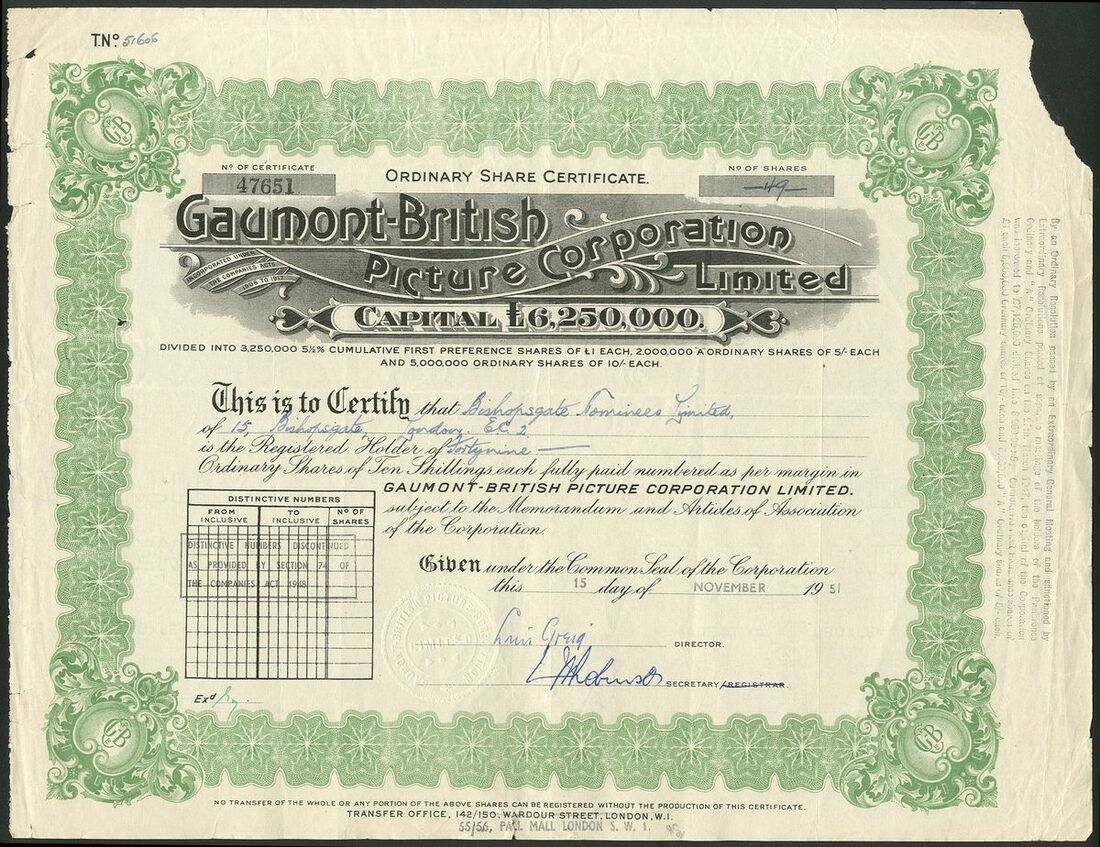 T.Nº 51606
Nº OF CERTIFICATE
47651
ORDINARY SHARE CERTIFICATE.
Nº OF SHARES
—49—
GAUMONT-BRITISH
PICTURE CORPORATION
LIMITED
INCORPORATED UNDER
THE COMPANIES ACTS
1908 TO 1917
CAPITAL £6,250,000.
DIVIDED INTO 3,250,000 5½% CUMULATIVE FIRST PREFERENCE SHARES OF £1 EACH, 2,000,000 A ORDINARY SHARES OF 5/- EACH
AND 5,000,000 ORDINARY SHARES OF 10/- EACH.
This is to Certify that Bishopsgate Nominees Limited,
of 15, Bishopsgate, London. E.C.2
is the Registered Holder of Fortynine —
Ordinary Shares of Ten Shillings each fully paid numbered as per margin in
GAUMONT-BRITISH PICTURE CORPORATION LIMITED.
subject to the Memorandum and Articles of Association
of the Corporation.
DISTINCTIVE NUMBERS
FROM INCLUSIVE
TO INCLUSIVE
Nº OF SHARES
DISTINCTIVE NUMBERS DISCONTINUED
AS PROVIDED BY SECTION 74 OF
THE COMPANIES ACT 1948
Given under the Common Seal of the Corporation
this 15 day of NOVEMBER 1951
DIRECTOR.
SECRETARY/REGISTRAR.
Exd
GB
GB
GB
GB
By an Ordinary Resolution passed by an Extraordinary General Meeting and sanctioned by
Extraordinary Resolutions passed at separate meetings of the holders of the Preference
Ordinary and "A" Ordinary
NO TRANSFER OF THE WHOLE OR ANY PORTION OF THE ABOVE SHARES CAN BE REGISTERED WITHOUT THE PRODUCTION OF THIS CERTIFICATE.
TRANSFER OFFICE, 142/150, WARDOUR STREET, LONDON, W.1.
55/56, PALL MALL LONDON S. W. 1.